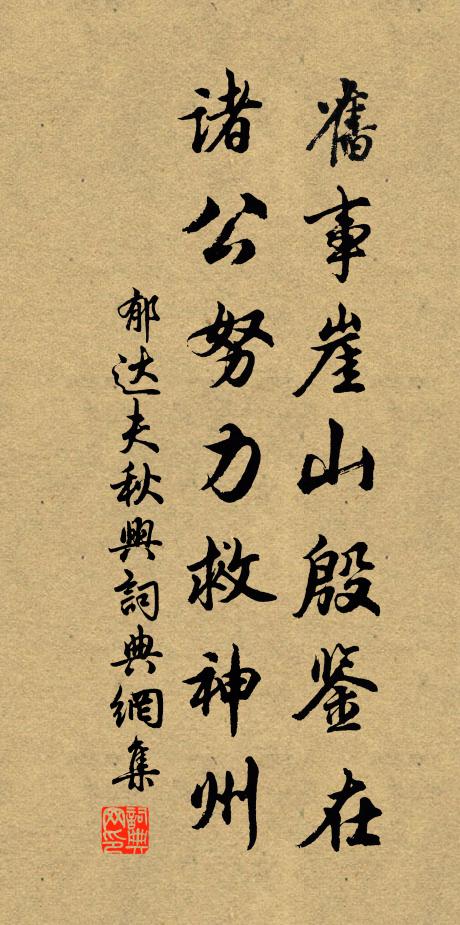 舊事崖山殷鉴在
诸公努力救神州
郁达夫秋興詞典網集
詞典網印